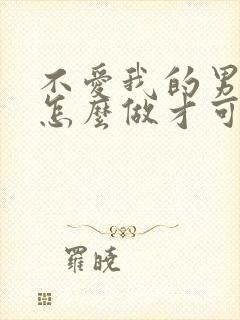 不愛我的男
怎麼做才可
羅曉